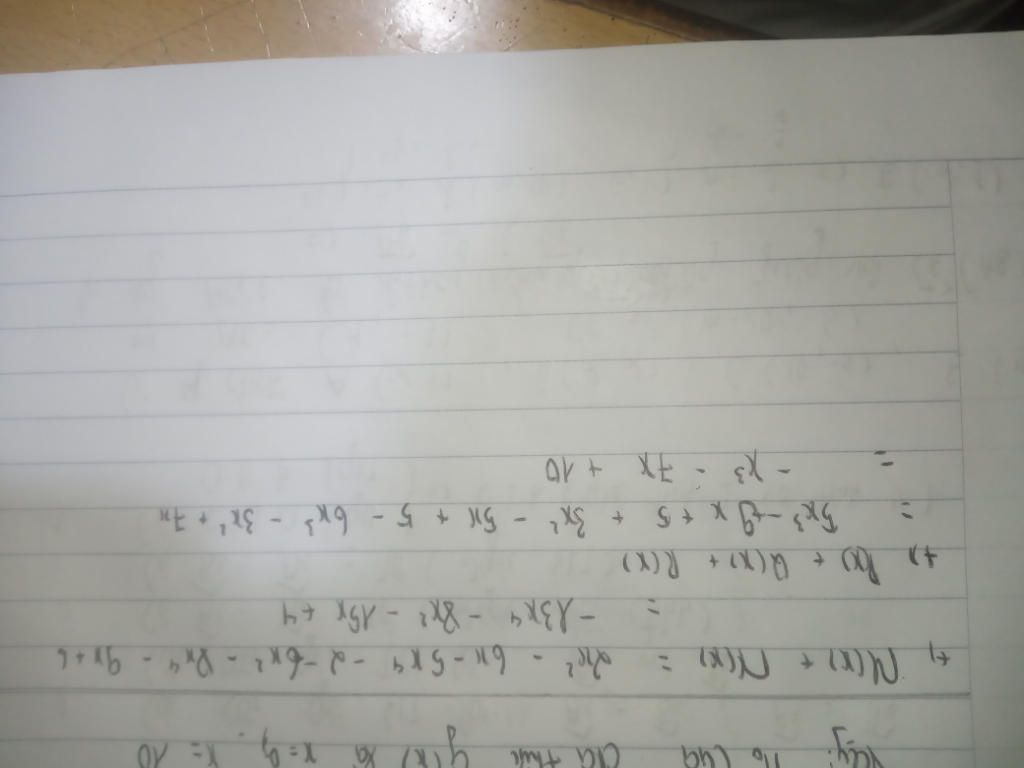 Vậy: no của đa thức g(x) là x=0, x=10
+) M(x) + N(x) = 2x² - 6x - 5x⁴ - 2 - 6x² - 8x⁴ - 9x + 6
= -13x⁴ - 8x² - 15x + 4
+) P(x) + Q(x) + R(x)
= 5x³ - 9x + 5 + 3x² - 5x + 5 - 6x³ - 3x² + 7x
= - x³ - 7x + 10